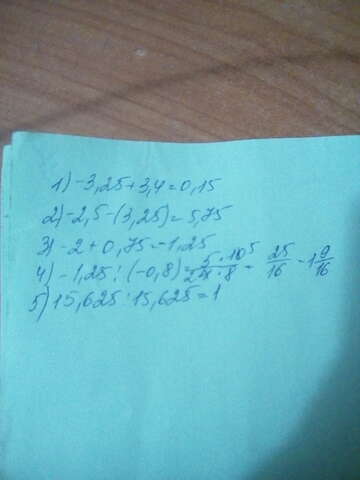 1) -3,25+3,4=0,15
2) -2,5-(3,25)=5,75
3) -2+0,75=-1,25
4) -1,25:(-0,8)=5·10⁵/₂4·8=25/16=1 9/16
5) 15,625:15,625=1